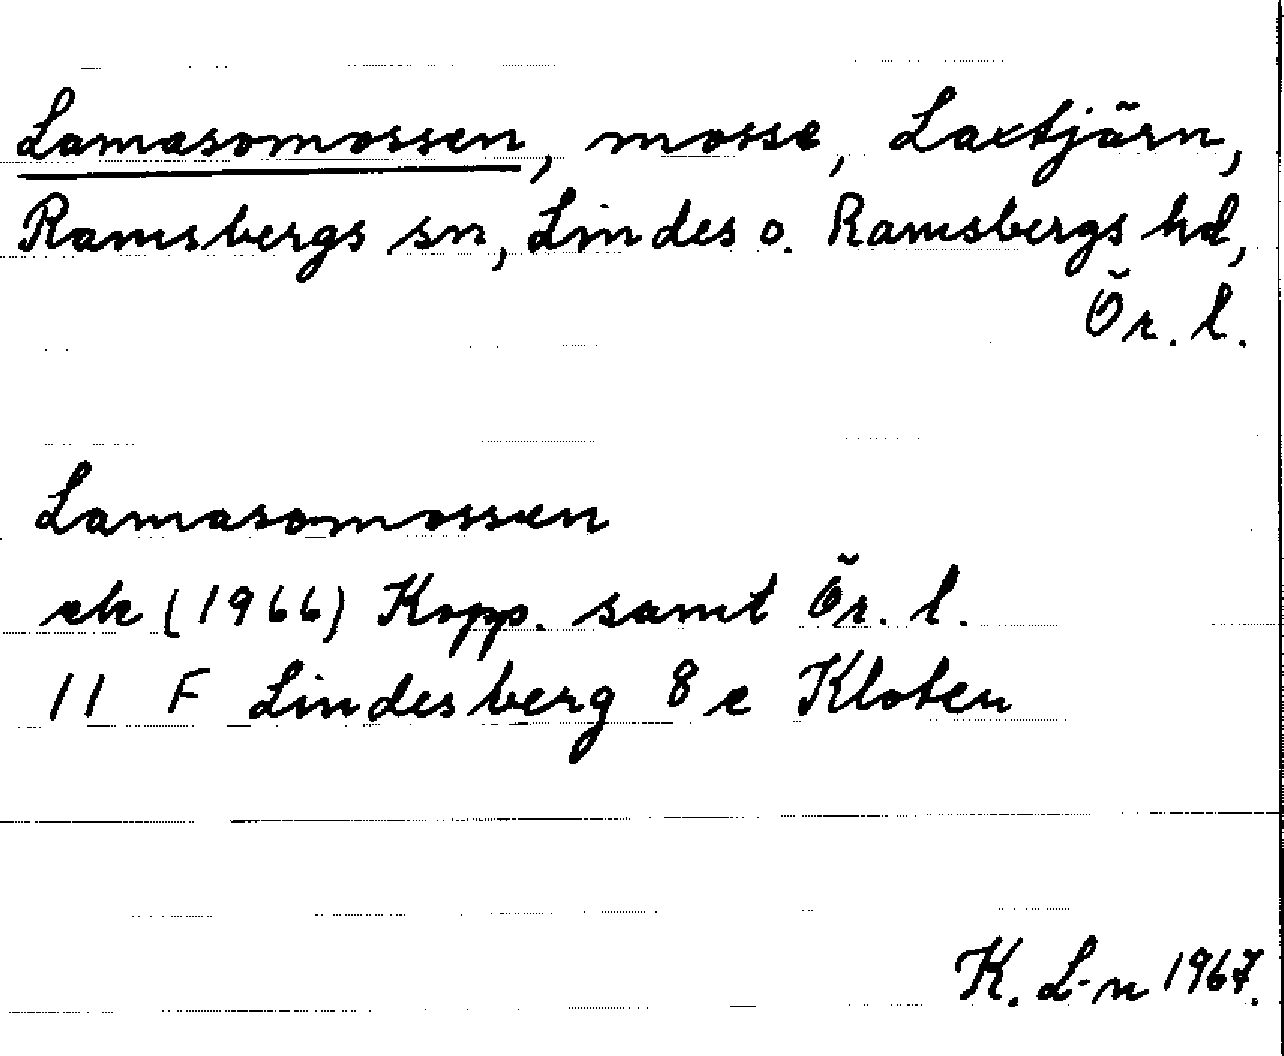 Lamasomossen, mosse, Laxtjärn,
Ramsbergs sn, Lindes o. Ramsbergs hd,
Ör. l.
Lamasomossen
ek (1966) Kopp. samt Ör. l.
11 F Lindesberg 8 e Kloten
K. L-n 1967.